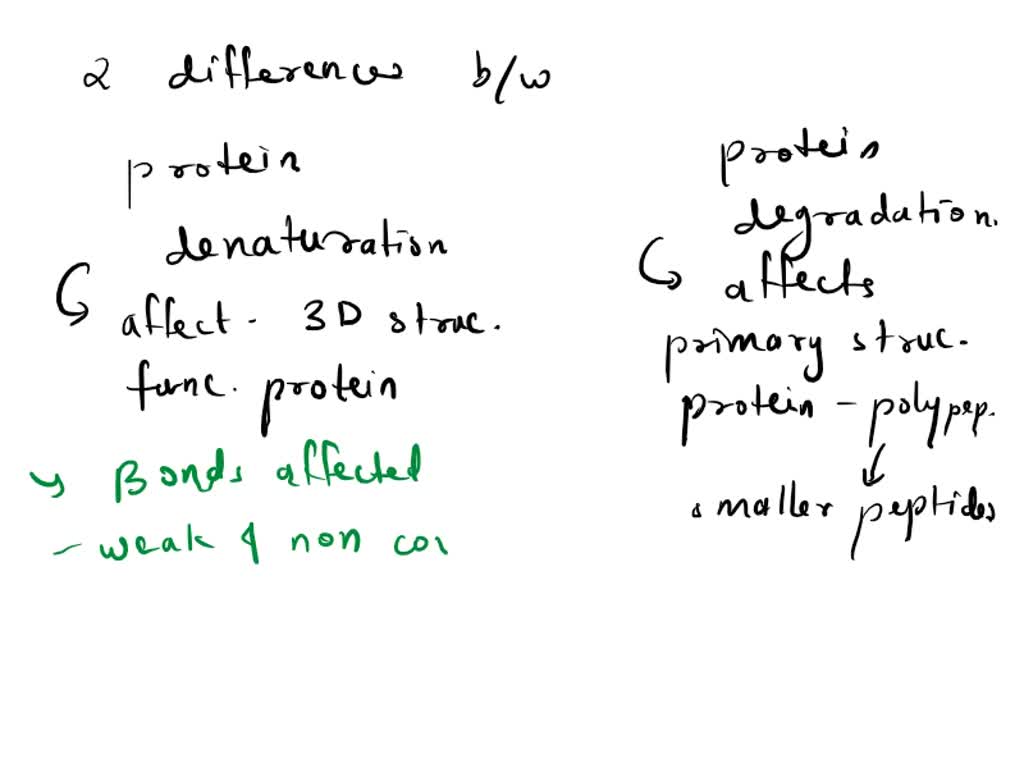 2 differences b/w
protein
denaturation
affect - 3D struc.
func. protein
Bonds affected
- weak & non cov
protein
degradation.
affects
primary struc.
protein - polypep.
smaller peptides